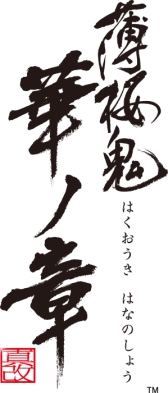 薄桜鬼
華ノ章
はくおうき はなのしょう
真改
TM